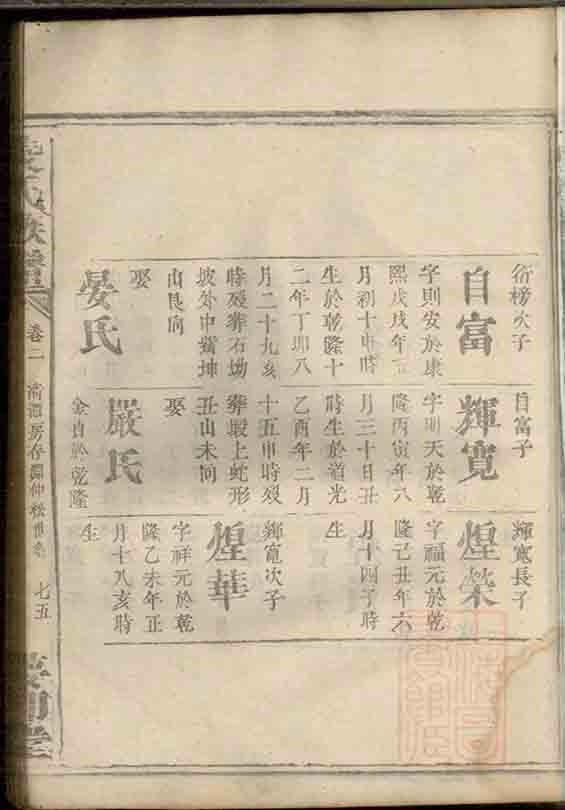 衍榜次子
自富
字則安於康
熙戊戌年五
月初十申時
生於乾隆十
二年丁卯八
月二十九亥
時歿葬石坳
坡外中嘴坤
山艮向
娶
晏氏
自富子
輝寬
字明天於乾
隆丙寅年六
月三十日丑
時生於道光
乙酉年三月
十五申時歿
葬塅上蛇形
丑山未向
娶
嚴氏
金貞於乾隆
輝寬長子
煌榮
字福元於乾
隆己丑年六
月十四子時
生
輝寬次子
煌華
字祥元於乾
隆乙未年正
月十八亥時
生
氏族譜
卷二
七五